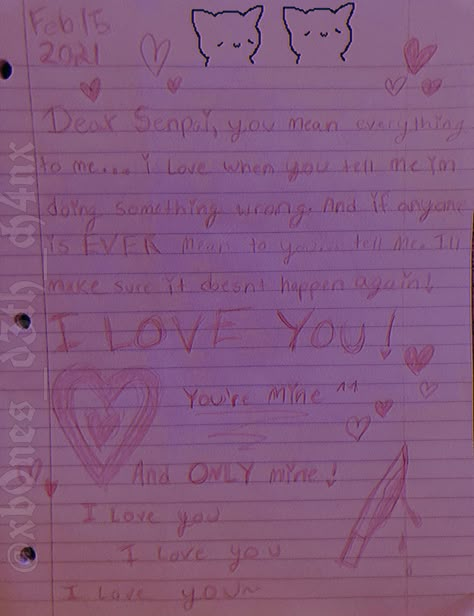 Feb 15
2021
Dear Senpai, you mean everything
to me.... i Love when you tell me i'm
doing something wrong. And if anyone
is EVER mean to you.... tell me. I'll
make sure it doesnt happen again!
I LOVE YOU!
You're mine ^^
And ONLY mine!
I Love you
I love you
I love you~
@xb0nes_d3th_ch4nx